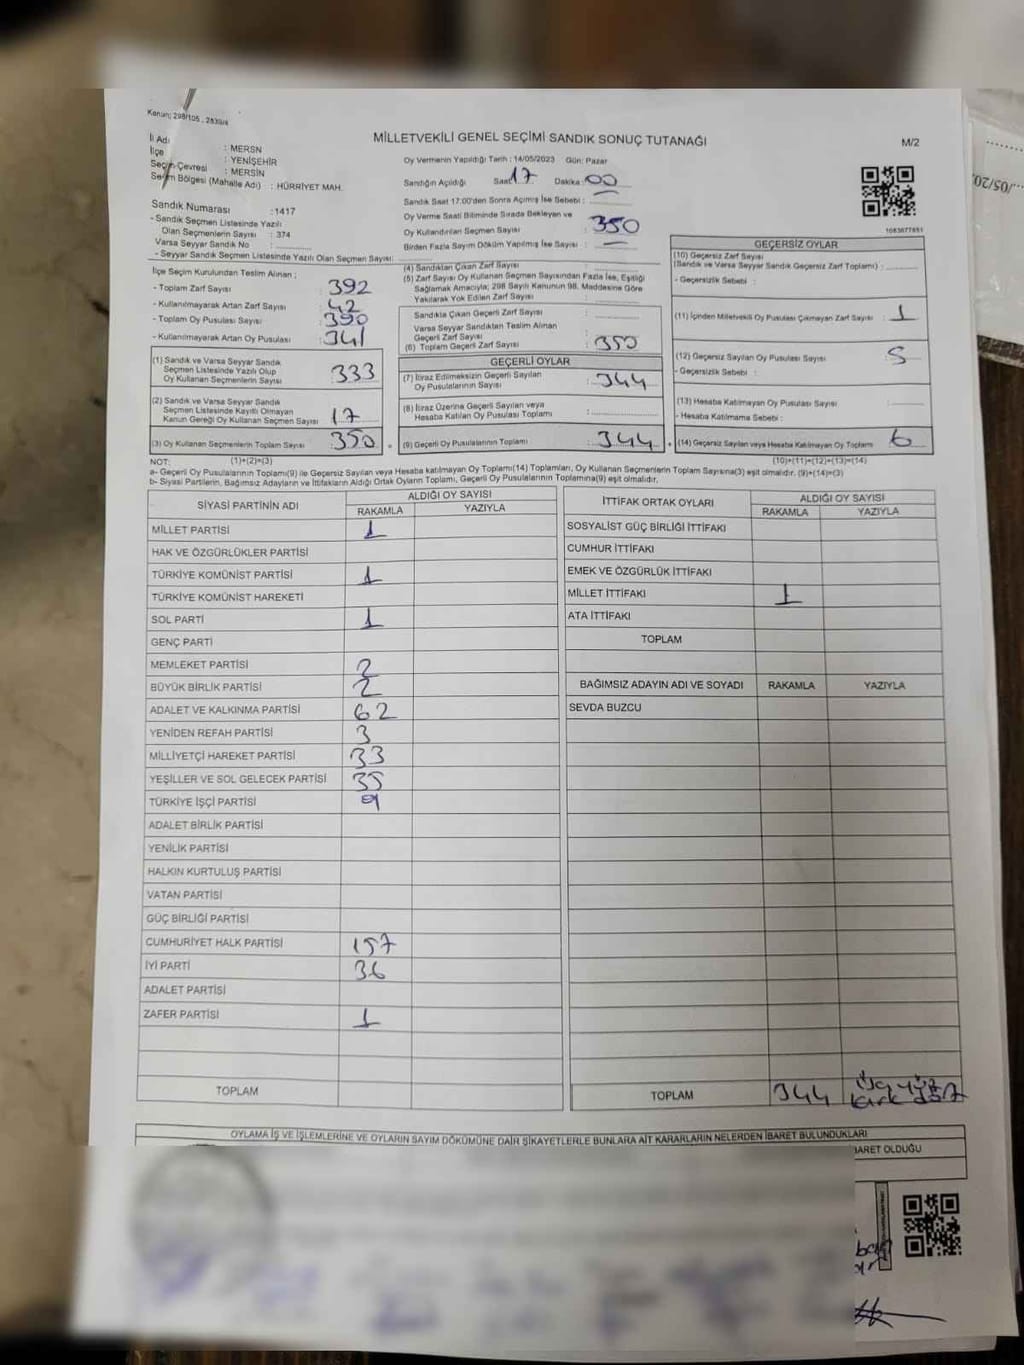 Kanun; 298/105, 2839/4
MİLLETVEKİLİ GENEL SEÇİMİ SANDIK SONUÇ TUTANAĞI
M/2
İl Adı : MERSN
İlçe : YENİŞEHİR
Seçim Çevresi : MERSİN
Seçim Bölgesi (Mahalle Adı) : HÜRRİYET MAH.
Sandık Numarası : 1417
- Sandık Seçmen Listesinde Yazılı
Olan Seçmenlerin Sayısı : 374
Varsa Seyyar Sandık No :
- Seyyar Sandık Seçmen Listesinde Yazılı Olan Seçmen Sayısı:
Oy Vermenin Yapıldığı Tarih : 14/05/2023 Gün: Pazar
Sandığın Açıldığı Saat: 17 Dakika: 00
Sandık Saat 17:00'den Sonra Açılmış İse Sebebi :
Oy Verme Saati Bitiminde Sırada Bekleyen ve
Oy Kullandırılan Seçmen Sayısı : 350
Birden Fazla Sayım Döküm Yapılmış İse Sayısı :
1083677851
İlçe Seçim Kurulundan Teslim Alınan ;
- Toplam Zarf Sayısı : 392
- Kullanılmayarak Artan Zarf Sayısı : 42
- Toplam Oy Pusulası Sayısı : 390
- Kullanılmayarak Artan Oy Pusulası : 341
(1) Sandık ve Varsa Seyyar Sandık
Seçmen Listesinde Yazılı Olup
Oy Kullanan Seçmenlerin Sayısı : 333
(2) Sandık ve Varsa Seyyar Sandık
Seçmen Listesinde Kayıtlı Olmayan
Kanun Gereği Oy Kullanan Seçmen Sayısı : 17
(3) Oy Kullanan Seçmenlerin Toplam Sayısı : 350
(1)+(2)=(3)
(4) Sandıktan Çıkan Zarf Sayısı :
(5) Zarf Sayısı Oy Kullanan Seçmen Sayısından Fazla İse, Eşitliği
Sağlamak Amacıyla; 298 Sayılı Kanunun 98. Maddesine Göre
Yakılarak Yok Edilen Zarf Sayısı :
Sandıkta Çıkan Geçerli Zarf Sayısı :
Varsa Seyyar Sandıktan Teslim Alınan
Geçerli Zarf Sayısı :
(6) Toplam Geçerli Zarf Sayısı : 350
GEÇERLİ OYLAR
(7) İtiraz Edilmeksizin Geçerli Sayılan
Oy Pusulalarının Sayısı : 344
(8) İtiraz Üzerine Geçerli Sayılan veya
Hesaba Katılan Oy Pusulası Toplamı :
(9) Geçerli Oy Pusulalarının Toplamı : 344
GEÇERSİZ OYLAR
(10) Geçersiz Zarf Sayısı
(Sandık ve Varsa Seyyar Sandık Geçersiz Zarf Toplamı) :
- Geçersizlik Sebebi :
(11) İçinden Milletvekili Oy Pusulası Çıkmayan Zarf Sayısı : 1
(12) Geçersiz Sayılan Oy Pusulası Sayısı : 5
- Geçersizlik Sebebi :
(13) Hesaba Katılmayan Oy Pusulası Sayısı :
- Hesaba Katılmama Sebebi :
(14) Geçersiz Sayılan veya Hesaba Katılmayan Oy Toplamı : 6
(10)+(11)+(12)+(13)=(14)
NOT:
a- Geçerli Oy Pusulalarının Toplamı(9) ile Geçersiz Sayılan veya Hesaba katılmayan Oy Toplamı(14) Toplamları, Oy Kullanan Seçmenlerin Toplam Sayısına(3) eşit olmalıdır. (9)+(14)=(3)
b- Siyasi Partilerin, Bağımsız Adayların ve İttifakların Aldığı Ortak Oyların Toplamı, Geçerli Oy Pusulalarının Toplamına(9) eşit olmalıdır.
SİYASİ PARTİNİN ADI ALDIĞI OY SAYISI
RAKAMLA YAZIYLA
MİLLET PARTİSİ 1
HAK VE ÖZGÜRLÜKLER PARTİSİ
TÜRKİYE KOMÜNİST PARTİSİ 1
TÜRKİYE KOMÜNİST HAREKETİ
SOL PARTİ 1
GENÇ PARTİ
MEMLEKET PARTİSİ 2
BÜYÜK BİRLİK PARTİSİ 2
ADALET VE KALKINMA PARTİSİ 62
YENİDEN REFAH PARTİSİ 3
MİLLİYETÇİ HAREKET PARTİSİ 33
YEŞİLLER VE SOL GELECEK PARTİSİ 35
TÜRKİYE İŞÇİ PARTİSİ
ADALET BİRLİK PARTİSİ
YENİLİK PARTİSİ
HALKIN KURTULUŞ PARTİSİ
VATAN PARTİSİ
GÜÇ BİRLİĞİ PARTİSİ
CUMHURİYET HALK PARTİSİ 157
İYİ PARTİ 36
ADALET PARTİSİ
ZAFER PARTİSİ 1
TOPLAM
İTTİFAK ORTAK OYLARI ALDIĞI OY SAYISI
RAKAMLA YAZIYLA
SOSYALİST GÜÇ BİRLİĞİ İTTİFAKI
CUMHUR İTTİFAKI
EMEK VE ÖZGÜRLÜK İTTİFAKI
MİLLET İTTİFAKI 1
ATA İTTİFAKI
TOPLAM
BAĞIMSIZ ADAYIN ADI VE SOYADI RAKAMLA YAZIYLA
SEVDA BUZCU
TOPLAM 344 Üç yüz
kırk dört
OYLAMA İŞ VE İŞLEMLERİNE VE OYLARIN SAYIM DÖKÜMÜNE DAİR ŞİKAYETLERLE BUNLARA AİT KARARLARIN NELERDEN İBARET BULUNDUKLARI
BARET OLDUĞU